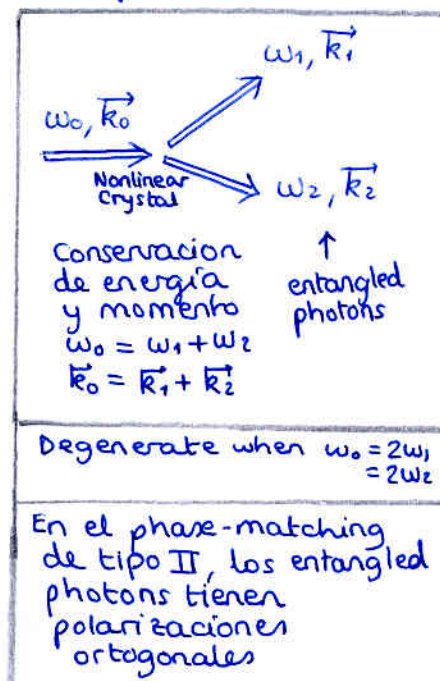 ω₁, k₁→
ω₀, k₀→
Nonlinear
Crystal
ω₂, k₂→
Conservacion
de energía
y momento
↑
entangled
photons
ω₀ = ω₁ + ω₂
k₀→ = k₁→ + k₂→
Degenerate when ω₀ = 2ω₁
= 2ω₂
En el phase-matching
de tipo II, los entangled
photons tienen
polarizaciones
ortogonales